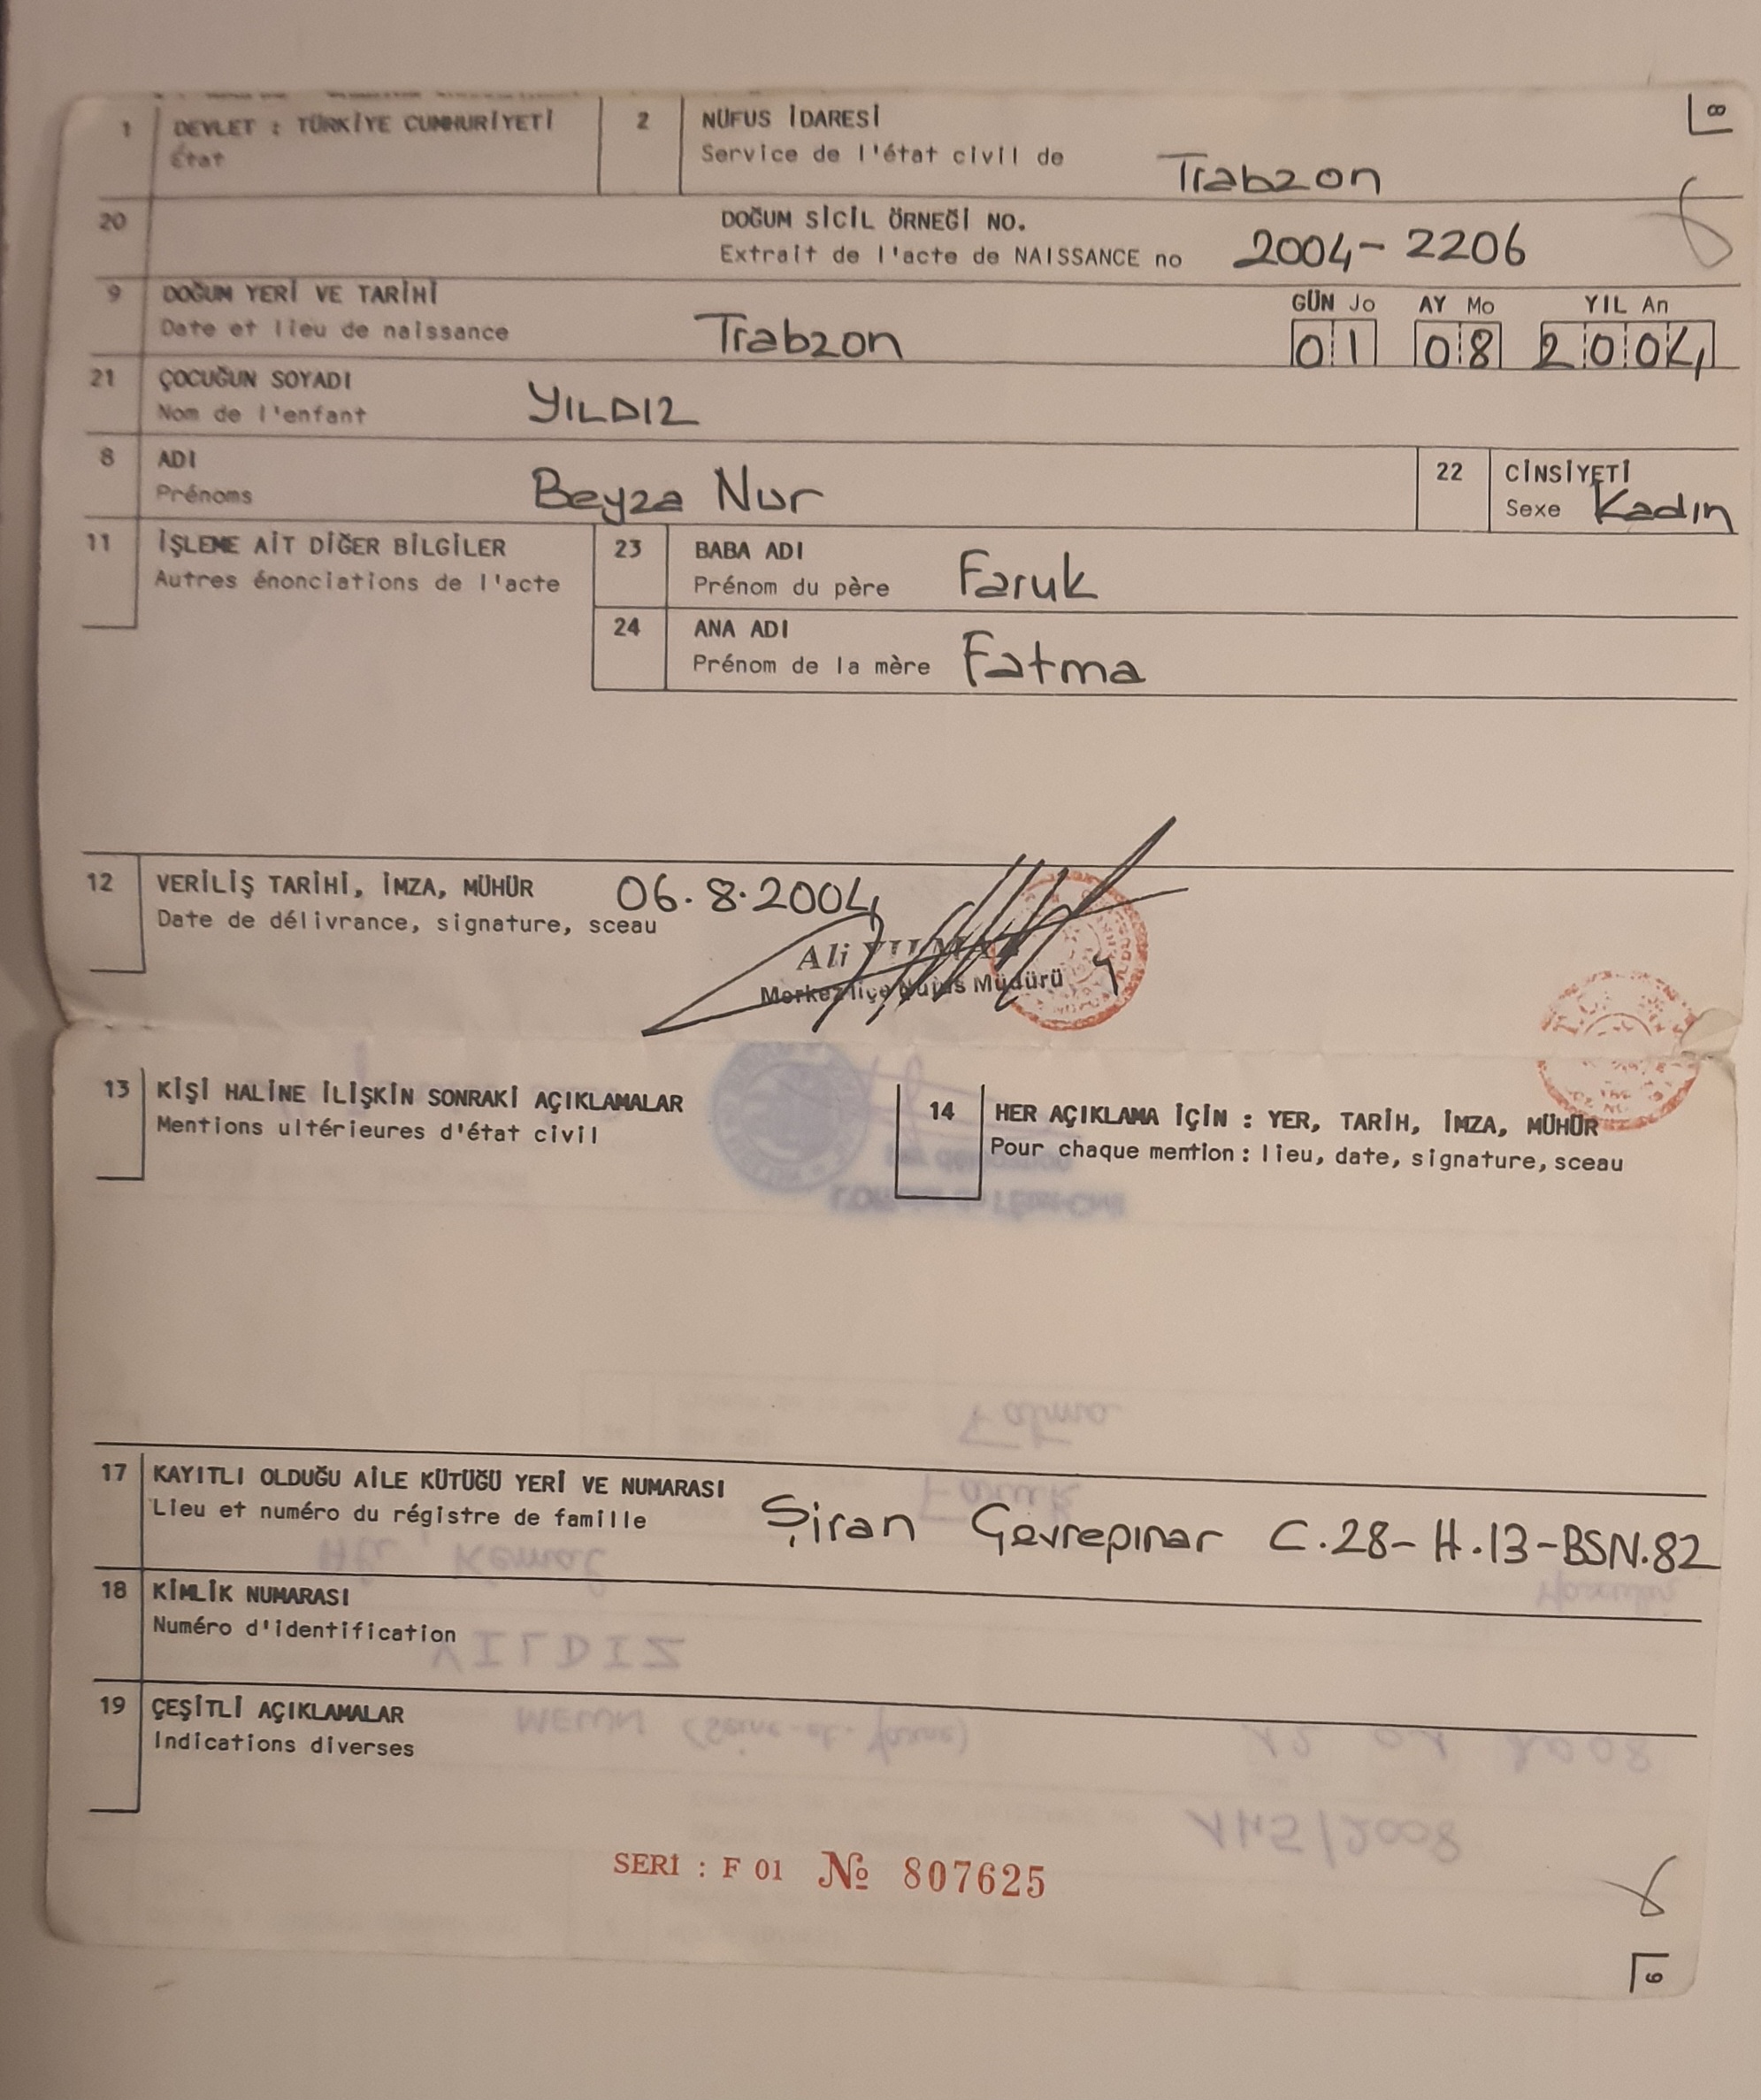 1 DEVLET : TÜRKİYE CUMHURİYETİ
État
2 NÜFUS İDARESİ
Service de l'état civil de Trabzon
8
20 DOĞUM SİCİL ÖRNEĞİ NO.
Extrait de l'acte de NAISSANCE no 2004-2206
9 DOĞUM YERİ VE TARİHİ
Date et lieu de naissance Trabzon
GÜN Jo AY Mo YIL An
01 08 2004
21 ÇOCUĞUN SOYADI
Nom de l'enfant YILDIZ
8 ADI
Prénoms Beyza Nur
22 CİNSİYETİ
Sexe Kadın
11 İŞLEME AİT DİĞER BİLGİLER
Autres énonciations de l'acte
23 BABA ADI
Prénom du père Faruk
24 ANA ADI
Prénom de la mère Fatma
12 VERİLİŞ TARİHİ, İMZA, MÜHÜR 06.8.2004
Date de délivrance, signature, sceau
Ali
Merkez İlçe Nüfus Müdürü
13 KİŞİ HALİNE İLİŞKİN SONRAKİ AÇIKLAMALAR
Mentions ultérieures d'état civil
14 HER AÇIKLAMA İÇİN : YER, TARİH, İMZA, MÜHÜR
Pour chaque mention : lieu, date, signature, sceau
17 KAYITLI OLDUĞU AİLE KÜTÜĞÜ YERİ VE NUMARASI
Lieu et numéro du régistre de famille Şiran Çevrepınar C.28-H.13-BSN.82
18 KİMLİK NUMARASI
Numéro d'identification
19 ÇEŞİTLİ AÇIKLAMALAR
Indications diverses
SERİ : F 01 № 807625
9